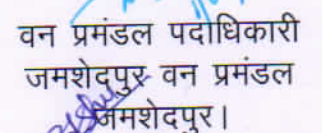 वन प्रमंडल पदाधिकारी
जमशेदपुर वन प्रमंडल
जमशेदपुर।